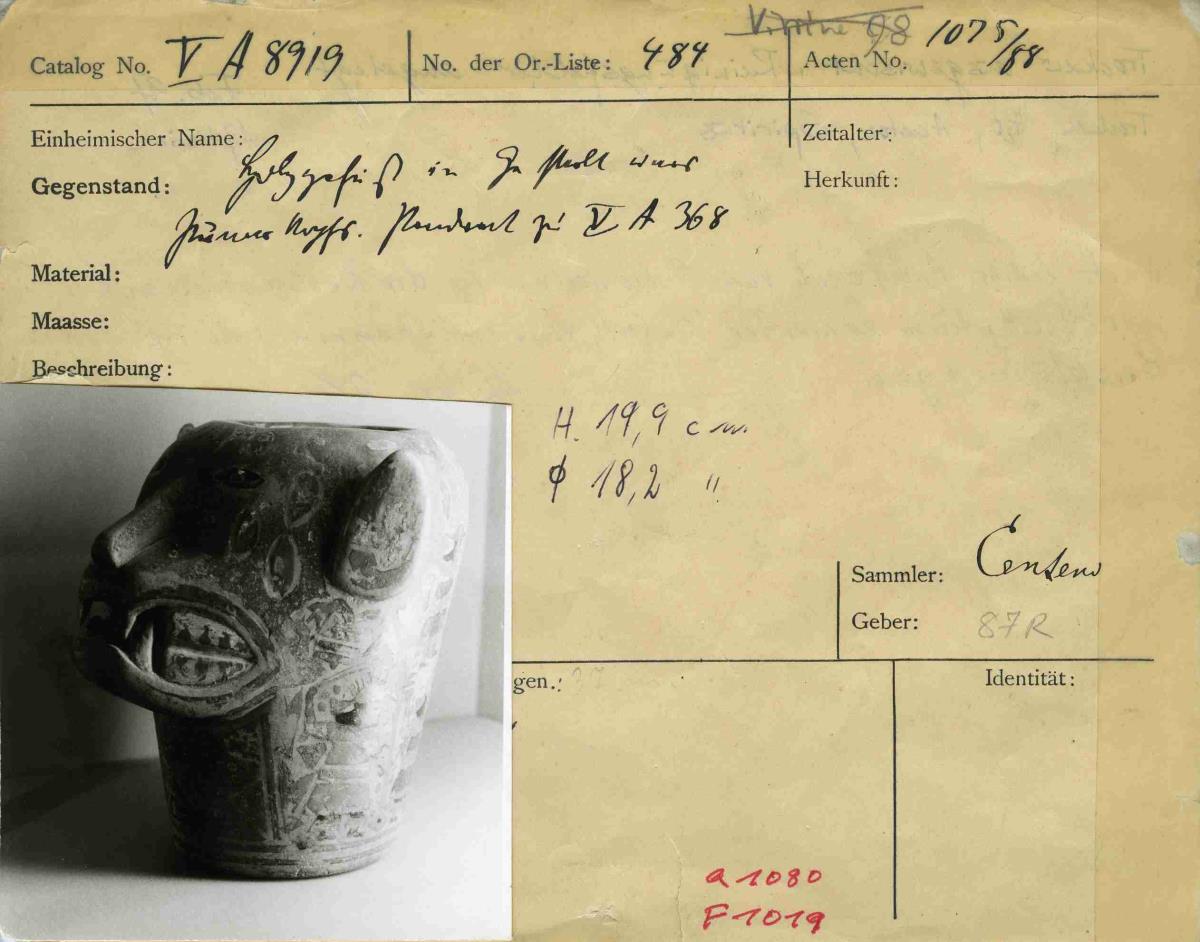 Vitrine 98
Catalog No. V A 8919
No. der Or.-Liste: 484
Acten No. 1075/88
Einheimischer Name:
Zeitalter:
Gegenstand: Holzgefäß in Gestalt eines
Herkunft:
Pumakopfs. Pendant zu V A 368
Material:
Maasse:
Beschreibung:
H. 19,9 cm
φ 18,2 "
Sammler: Centeno
Geber: 87R
gen.:
Identität:
a 1080
F 1019